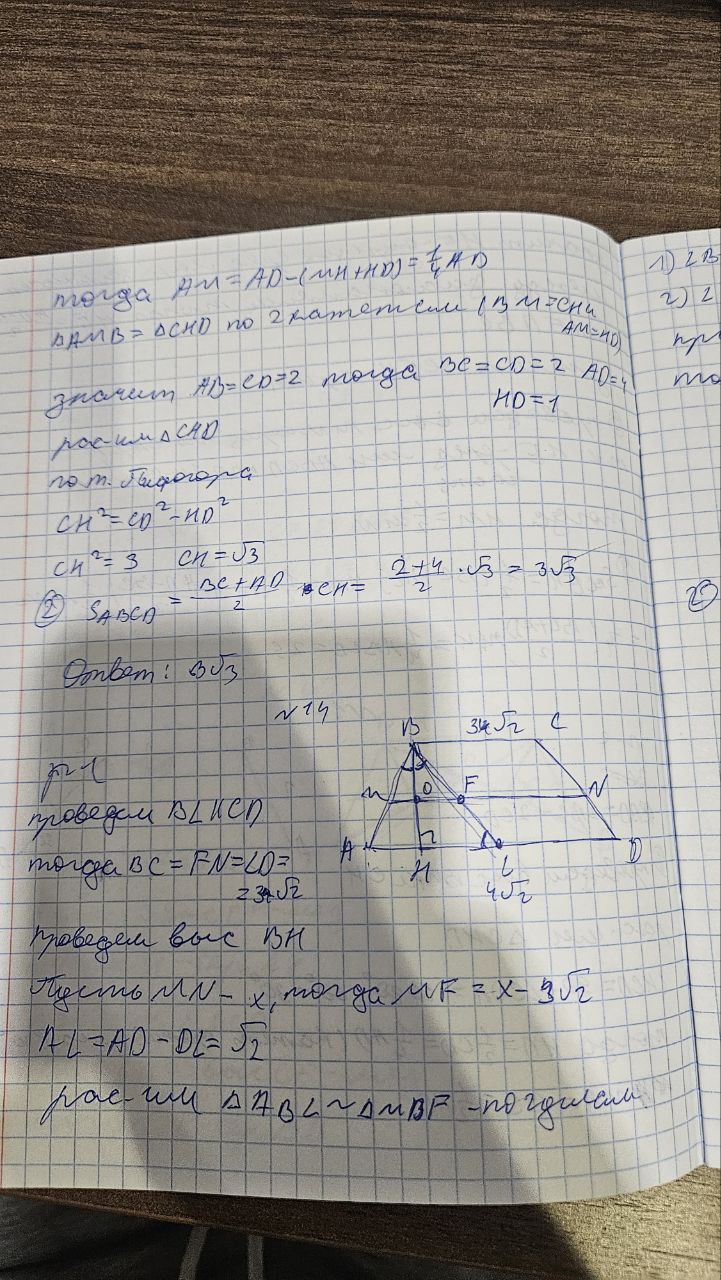 тогда AM = AD - (MH + HD) = 1/4 AD
△AMB = △CHD по 2 катетам (BM = CH и AM = HD)
значит AB = CD = 2 тогда BC = CD = 2 AD = 4
HD = 1
рас-им △CHD
по т. Пифагора
CH² = CD² - HD²
CH² = 3 CH = √3
② S_ABCD = (BC + AD)/2 · CH = (2+4)/2 · √3 = 3√3
Ответ: 3√3
№14
B 3√2 C
M O F N
A H L D
4√2
проведем BL ∥ CD
тогда BC = FN = LD =
= 3√2
проведем выс BH
Пусть MN - x, тогда MF = x - 3√2
AL = AD - DL = √2
рас-им △ABL ~ △MBF - по 2 углам
1) ∠B
2) ∠
пр
то
②